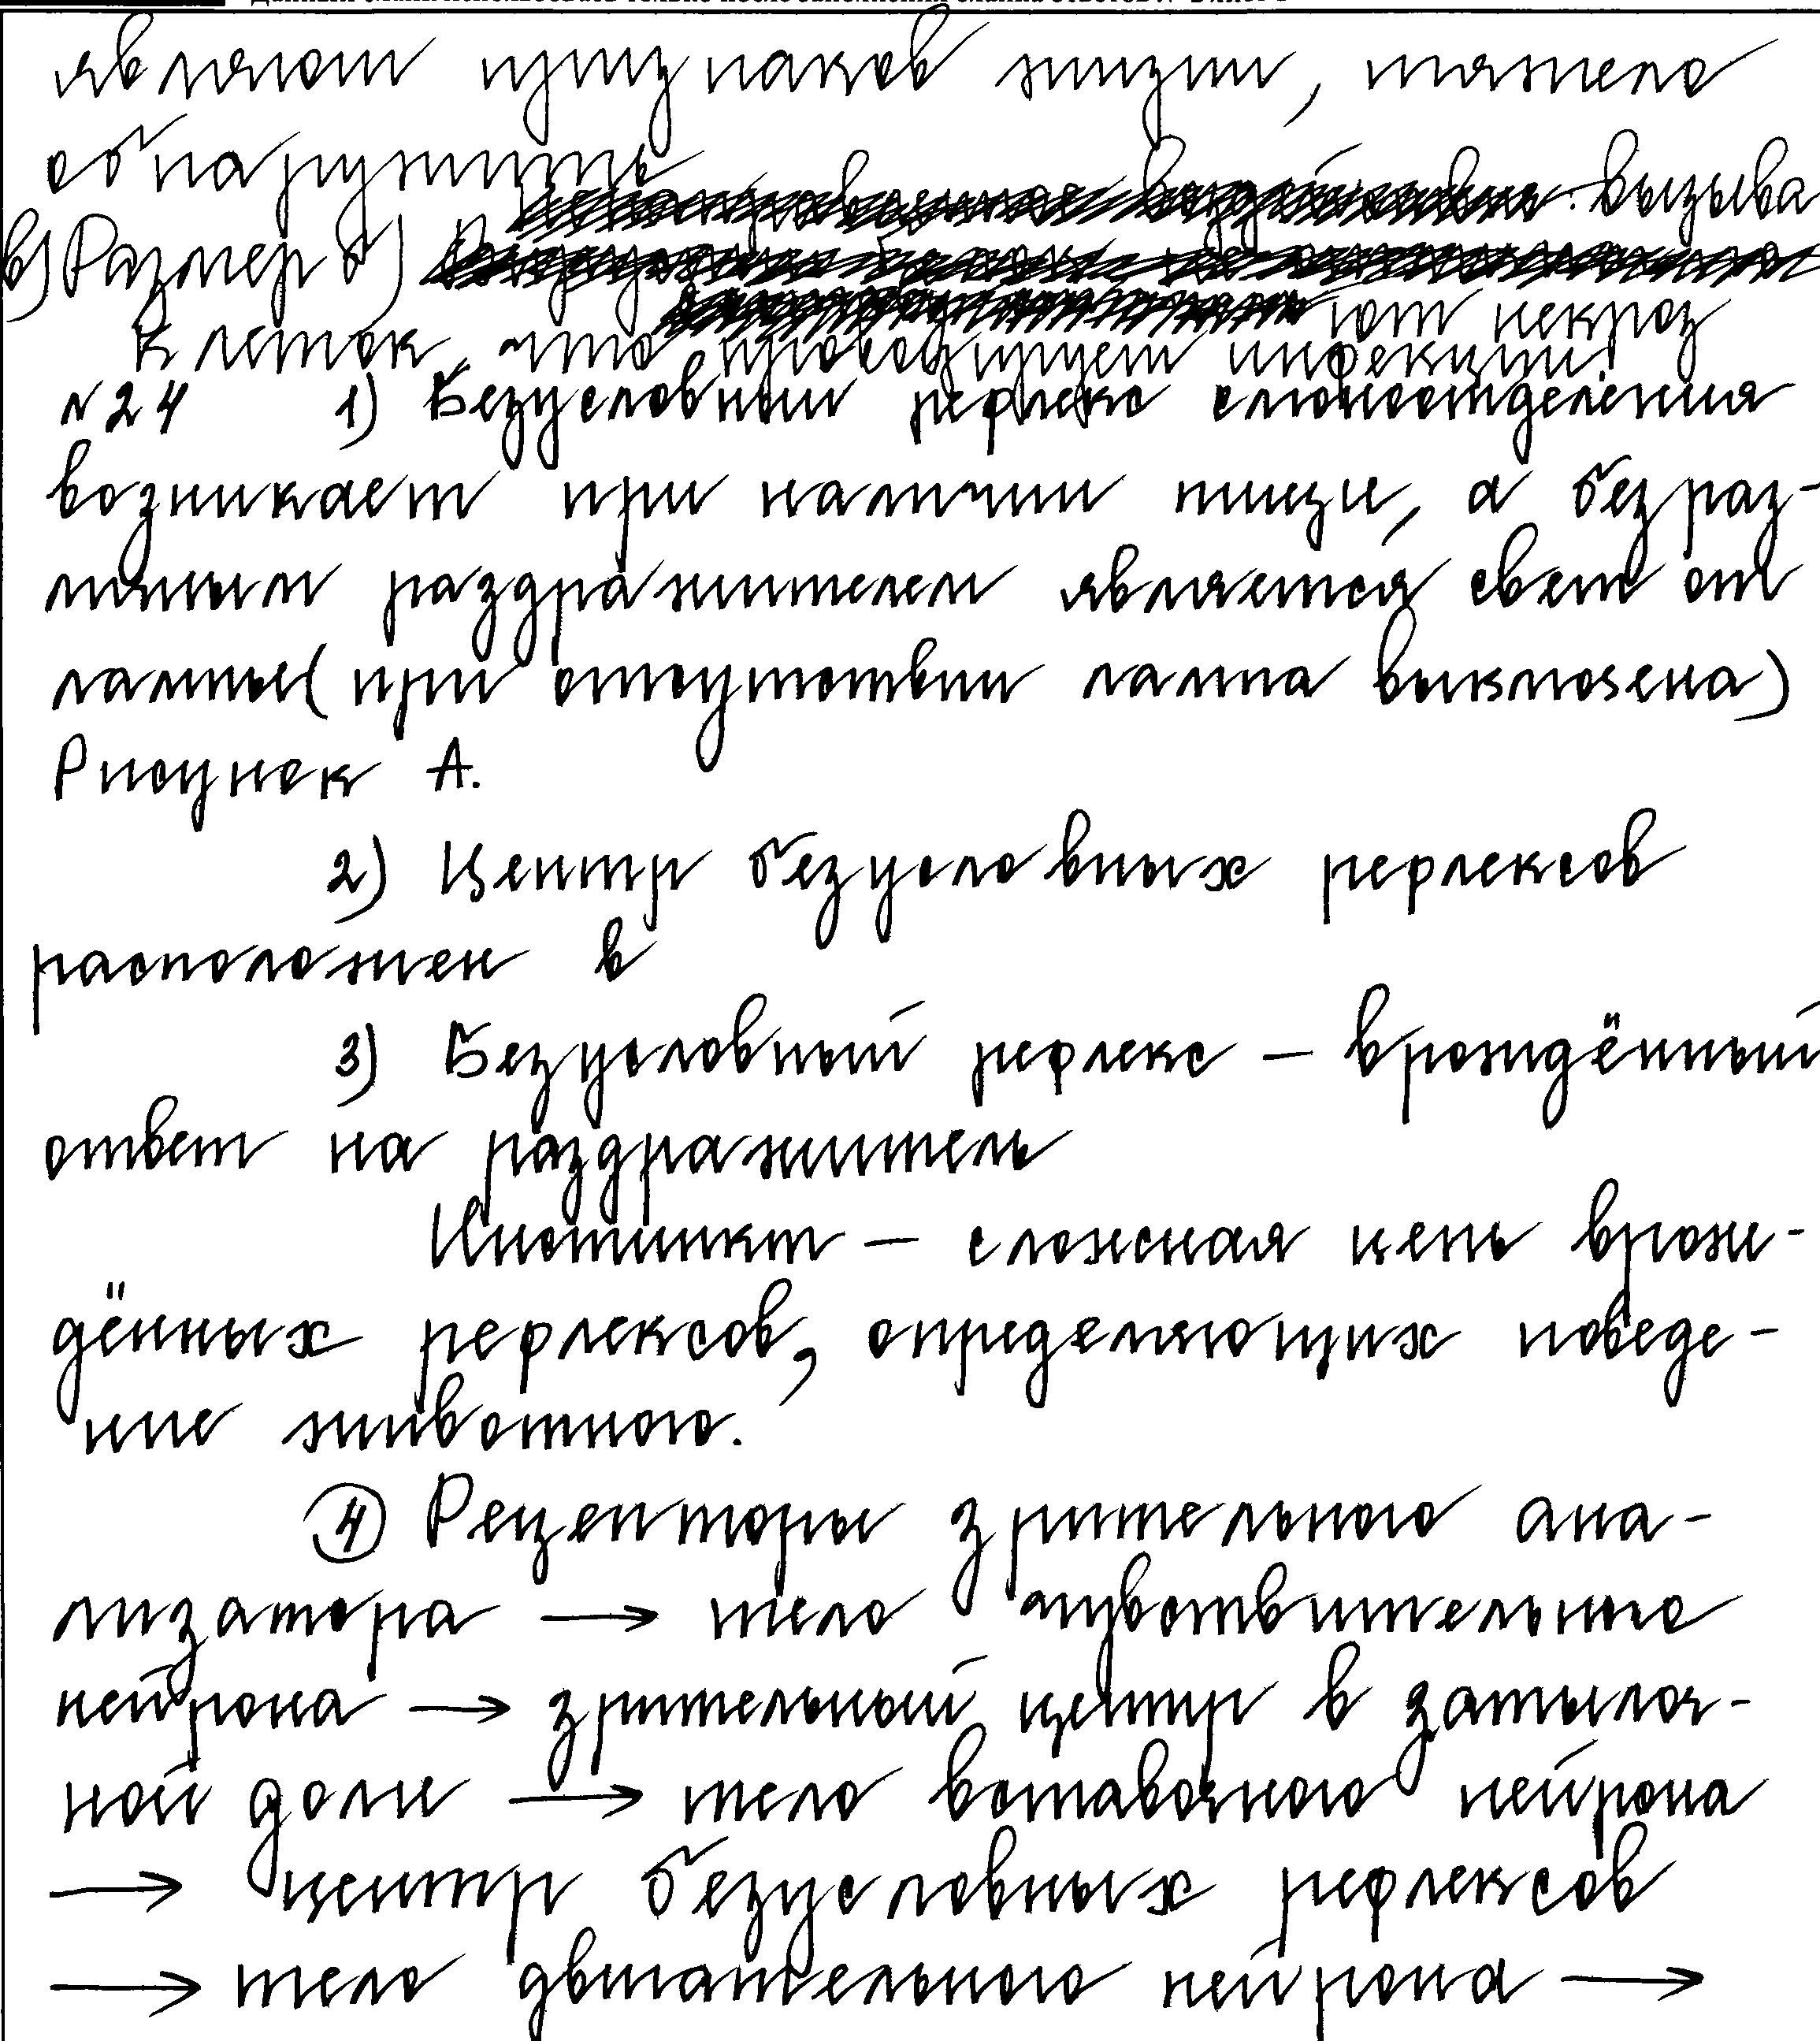 являют признаков жизни, тяжело
обнаружить
вызыва
в) Размер б)
ют некроз
клеток, что провоцирует инфекции.
№24 1) Безусловный рефлекс слюноотделения
возникает при наличии пищи, а безраз-
личным раздражителем является свет от
лампы (при отсутствии лампа выключена)
Рисунок А.
2) Центр безусловных рефлексов
расположен в
3) Безусловный рефлекс — врождённый
ответ на раздражитель
Инстинкт — сложная цепь врож-
дённых рефлексов, определяющих поведе-
ние животного.
4 Рецепторы зрительного ана-
лизатора → тело чувствительного
нейрона → зрительный центр в затылоч-
ной доли → тело вставочного нейрона
→ центр безусловных рефлексов
→ тело двигательного нейрона →